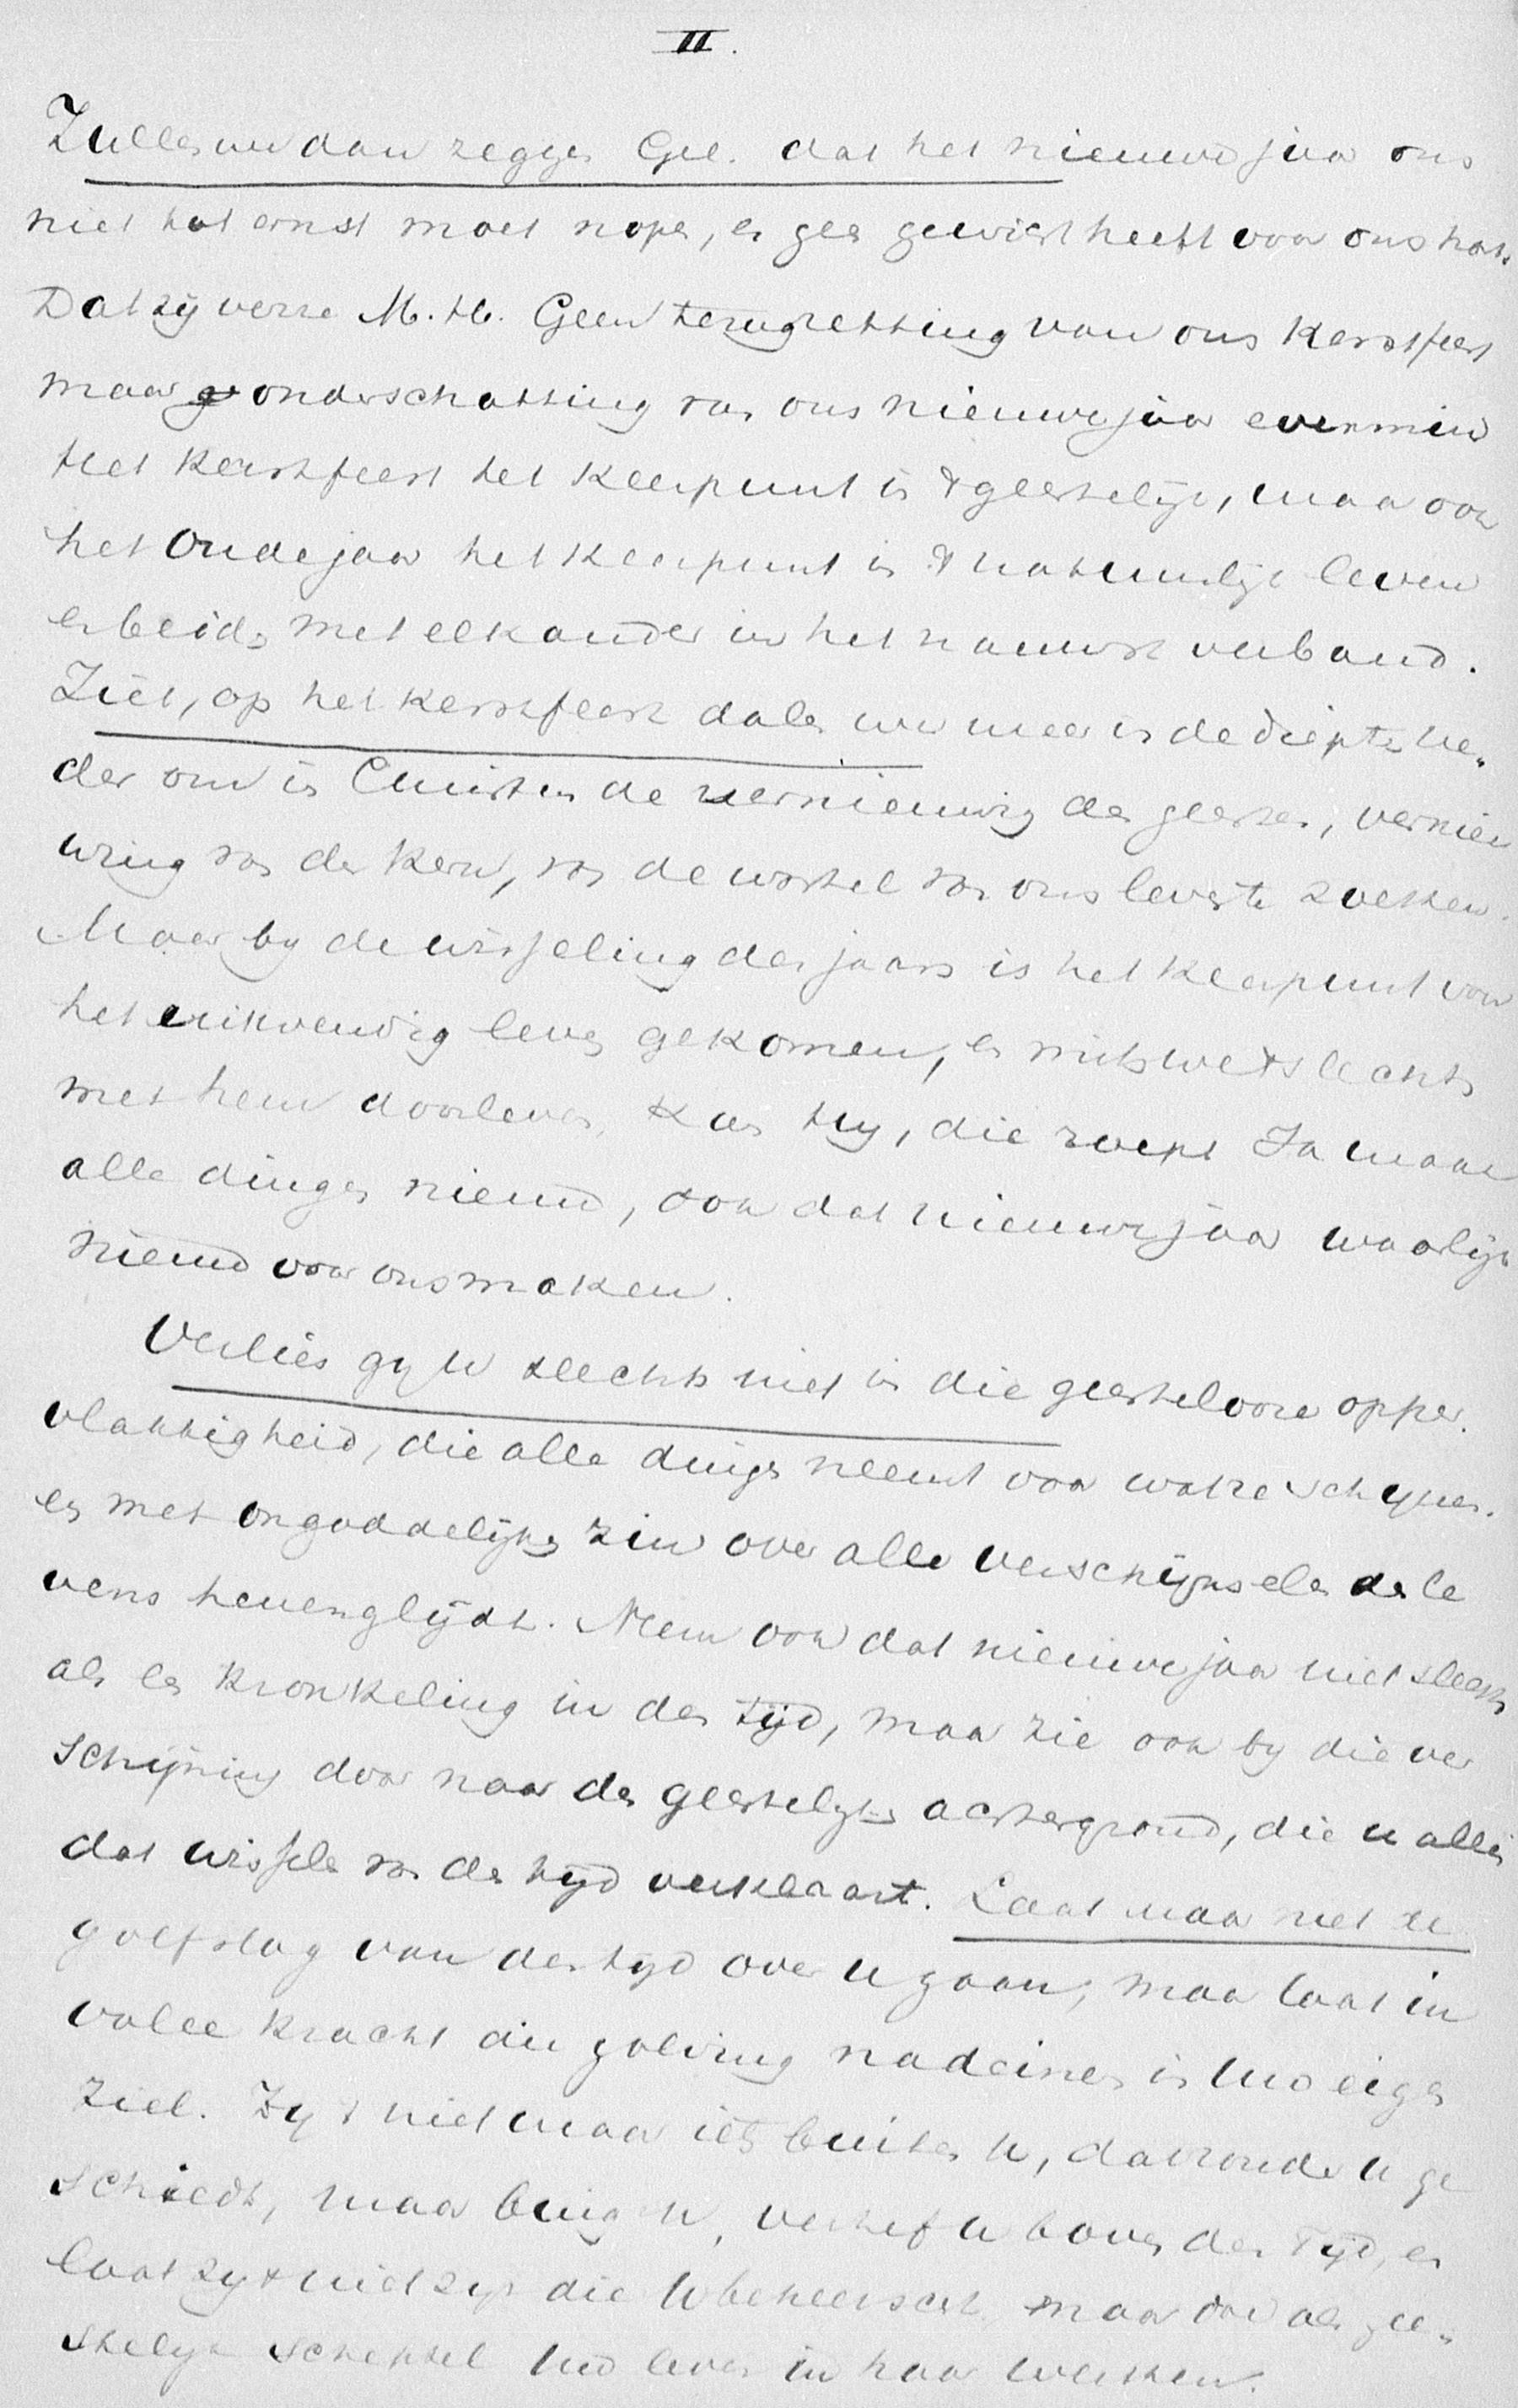 II.
Zullen we dan zeggen Gel. dat het nieuwe jaar ons
niet tot ernst moet nopen, en geen gewicht heeft voor ons hart.
Dat zij verre M. H. Geen terugzetting van ons Kerstfeest
maar onderschatting van ons nieuwejaar evenmin
Het Kerstfeest het keerpunt in 't geestelijk, maar ook
het Oudejaar het keerpunt in 't natuurlijk leven
en beide met elkander in het nauwst verband.
Ziet, op het kerstfeest dalen we meer in de diepte ne-
der om in Christus de vernieuwing des geestes, vernieu
wing van de kern, van de wortel van ons leven te zoeken.
Maar by de wisseling des jaars is het keerpunt van
het uitwendig leven gekomen, en mits we 't slechts
met hem doorleven, kan Hy, die roept Ik maak
alle dingen nieuw, ook dat nieuwejaar waarlijk
nieuw voor ons maken.
Verlies gy U slechts niet in die geestelooze opper-
vlakkigheid, die alle dingen neemt voor wat ze schynen.
en met ongoddelijken zin over alle verschijnselen des le
vens henenglijdt. Neem ook dat nieuwejaar niet slechts
als een kronkeling in den tijd, maar zie ook by die ver
schijning door naar den geestelyken achtergrond, die u alleen
dat wisselen van den tyd verklaart. Laat maar niet de
golfslag van den tyd over u gaan, maar laat in
volle kracht die golving nadeinen in Uw eigen
ziel. Zy 't niet maar iets buiten U, dat rondom U ge
schiedt, maar buig U, verhef U boven den Tijd, en
laat zy 't niet zyn die U beheerscht, maar doe als gee-
stelyk schepsel Uw leven in haar werken.